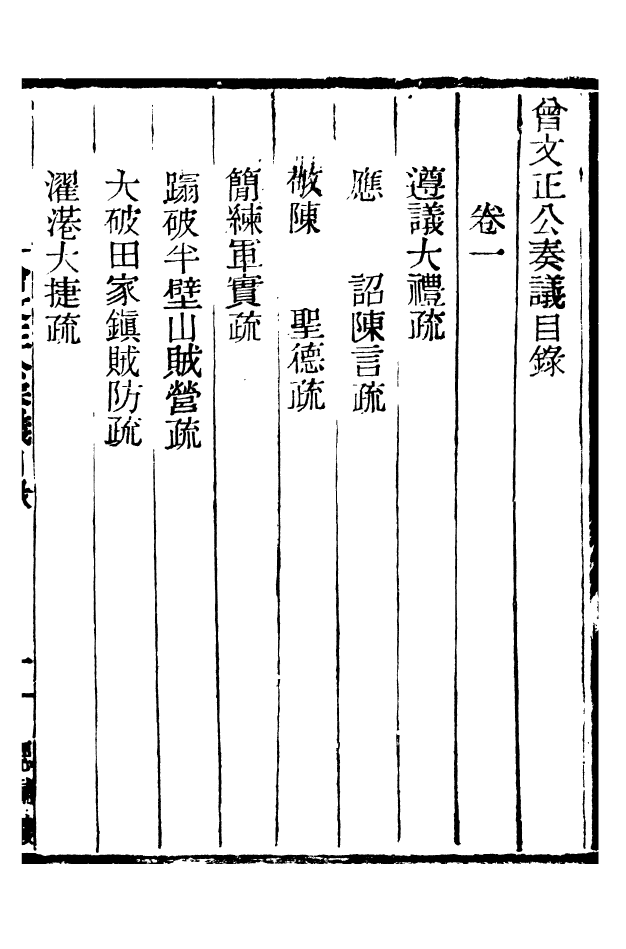 曾文正公奏議目錄
卷一
遵議大禮疏
應　詔陳言疏
敬陳　聖德疏
簡練軍實疏
蹋破半壁山賊營疏
大破田家鎮賊防疏
濯港大捷疏